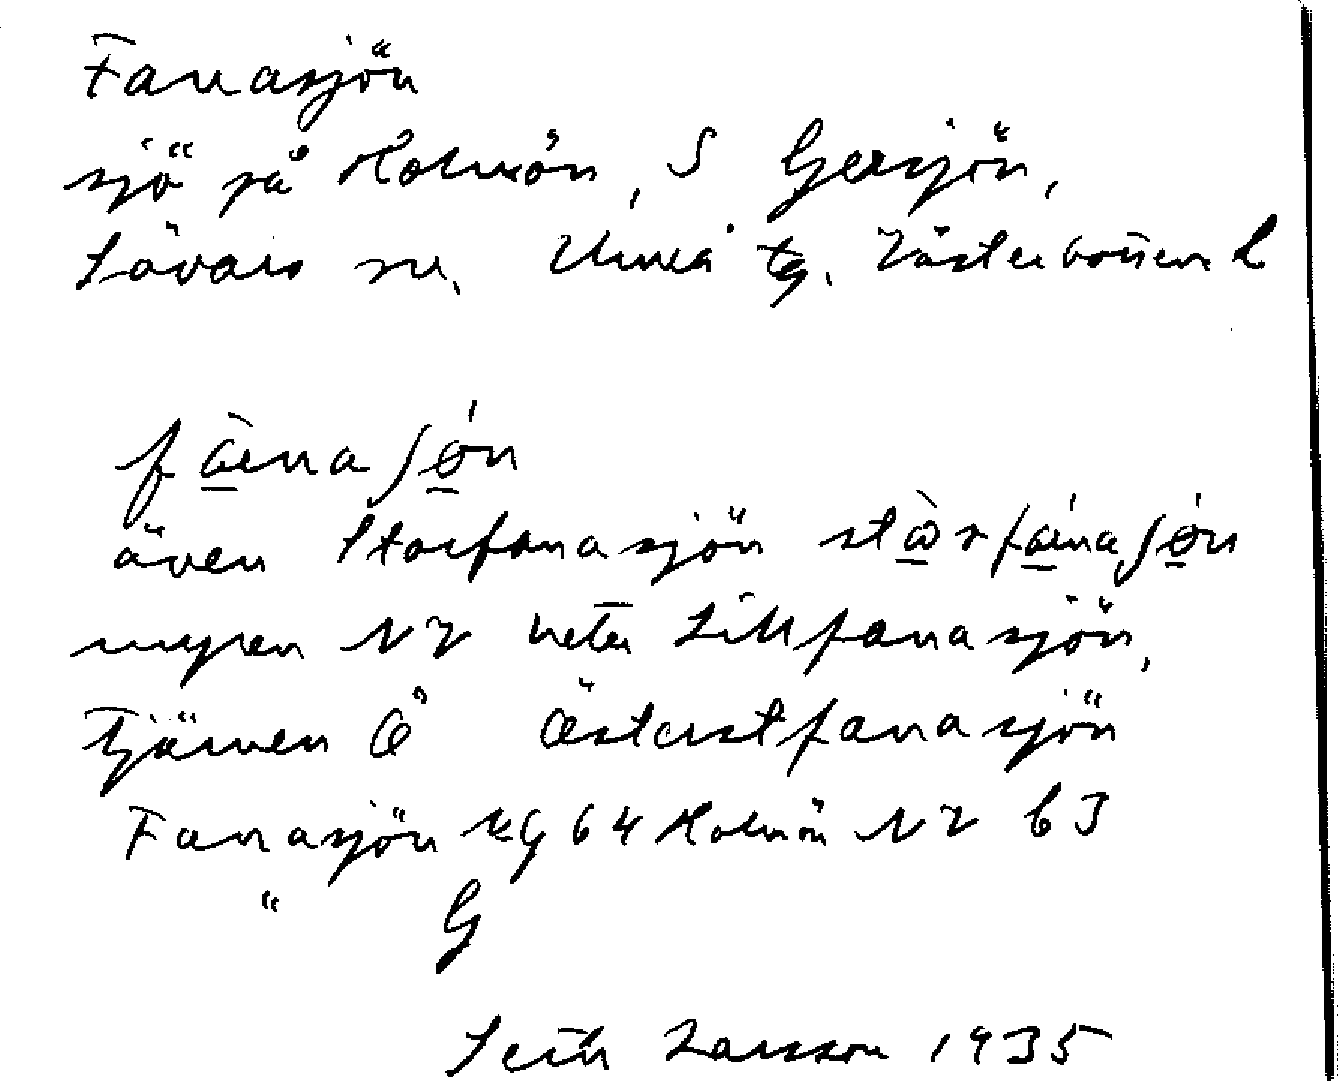 Fanasjön
sjö på Holmön, S Gersjön,
Sävars sn. Umeå tg. Västerbottens L
även Storfanasjön
myren NV heter Lillfanasjön,
Tjärnen Ö Österstfanasjön
Fanasjön kg 64 Holmön NV b3
" G
Seth Larsson 1935